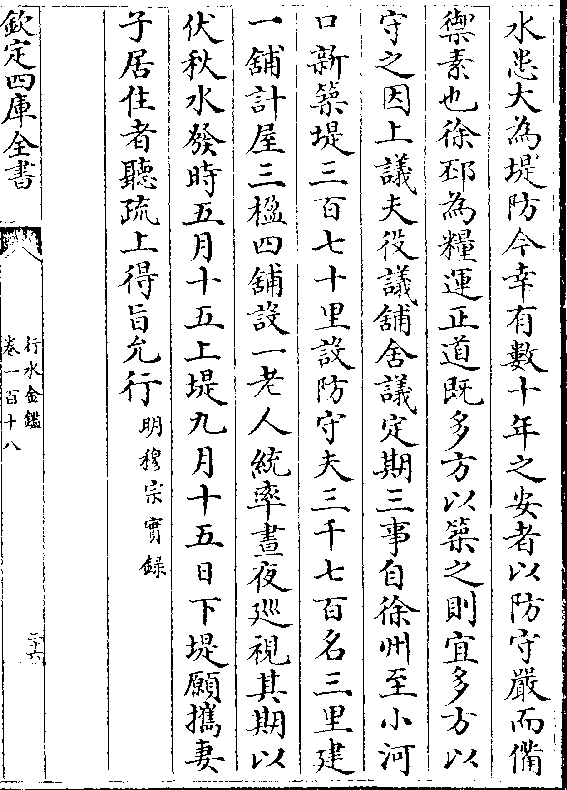 水患大為堤防今幸有數十年之安者以防守嚴而備
禦素也徐邳為糧運正道既多方以築之則宜多方以
守之因上議夫役議舖舍議定期三事自徐州至小河
口新築堤三百七十里設防守夫三千七百名三里建
一舖計屋三楹四舖設一老人統率晝夜廵視其期以
伏秋水發時五月十五上堤九月十五日下堤願攜妻
子居住者聽疏上得旨允行明穆宗實録
欽定四庫全書
行水金鑑
卷一百十八
三十六